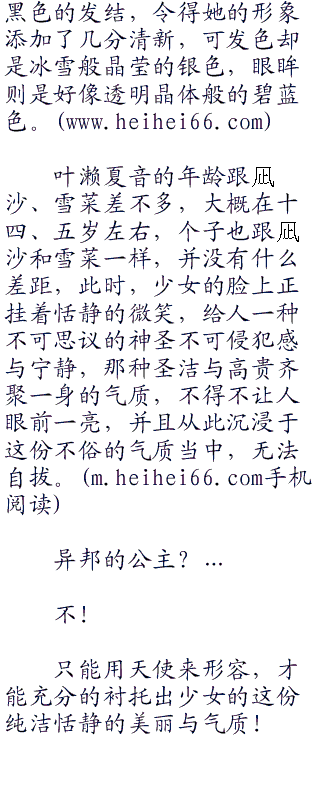 黑色的发结，令得她的形象
添加了几分清新，可发色却
是冰雪般晶莹的银色，眼眸
则是好像透明晶体般的碧蓝
色。(www.heihei66.com)
叶濑夏音的年龄跟凪
沙、雪菜差不多，大概在十
四、五岁左右，个子也跟凪
沙和雪菜一样，并没有什么
差距，此时，少女的脸上正
挂着恬静的微笑，给人一种
不可思议的神圣不可侵犯感
与宁静，那种圣洁与高贵齐
聚一身的气质，不得不让人
眼前一亮，并且从此沉浸于
这份不俗的气质当中，无法
自拔。(m.heihei66.com手机
阅读)
异邦的公主？…
不！
只能用天使来形容，才
能充分的衬托出少女的这份
纯洁恬静的美丽与气质！